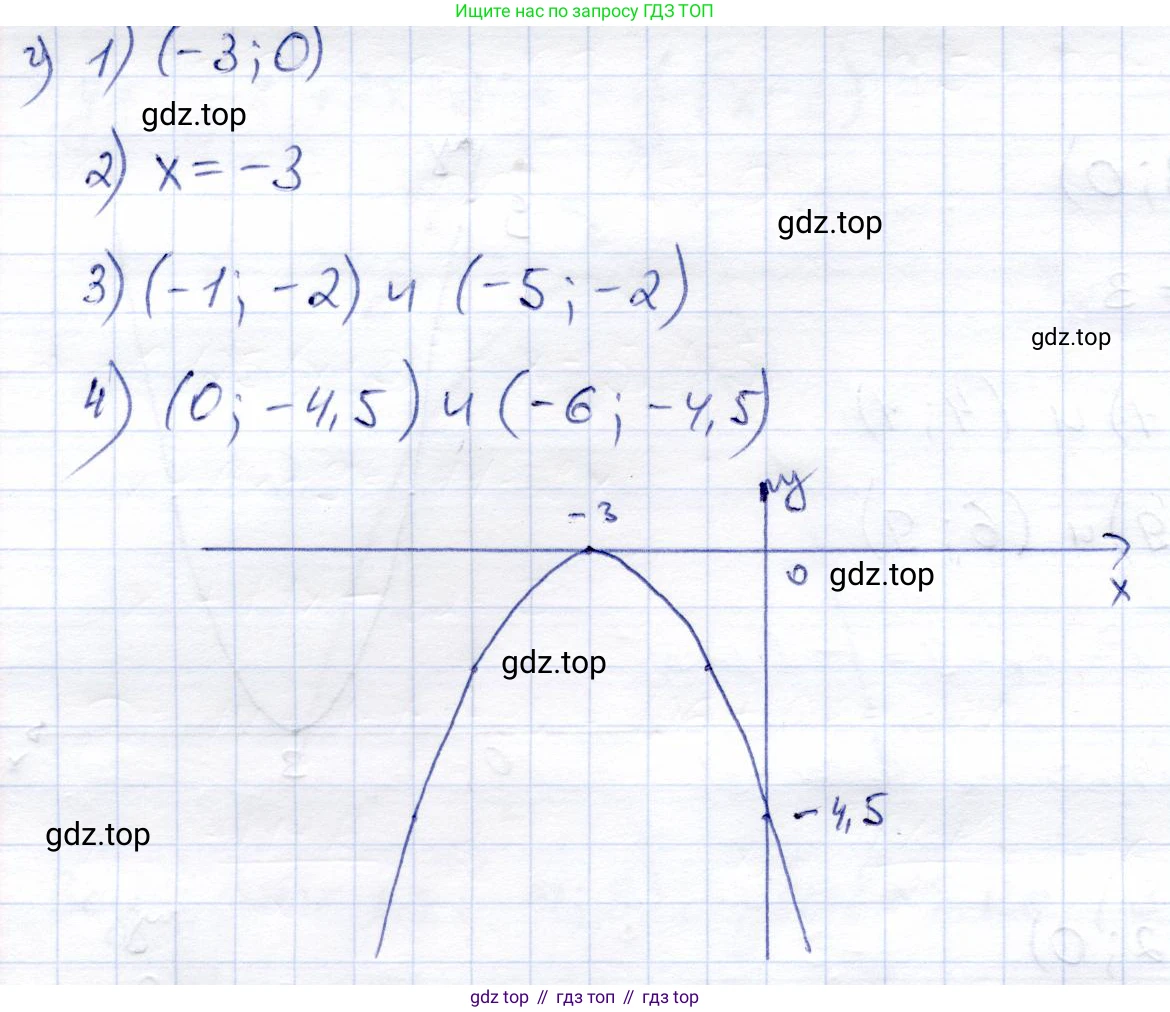 Ищите нас по запросу ГДЗ ТОП
г) 1) (-3; 0)
gdz.top
2) x = -3
gdz.top
3) (-1; -2) и (-5; -2)
gdz.top
4) (0; -4,5) и (-6; -4,5)
y
-3
0 gdz.top
x
gdz.top
-4,5
gdz.top
gdz top // гдз топ // гдз top